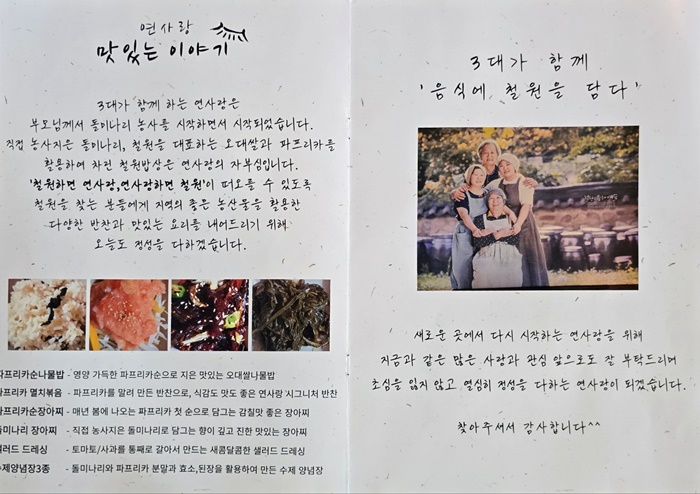 연사랑
맛있는 이야기
3대가 함께 하는 연사랑은
부모님께서 돌미나리 농사를 시작하면서 시작되었습니다.
직접 농사지은 돌미나리, 철원을 대표하는 오대쌀과 파프리카를
활용하여 차린 철원밥상은 연사랑의 자부심입니다.
'철원하면 연사랑, 연사랑하면 철원'이 떠오를 수 있도록
철원을 찾는 분들에게 지역의 좋은 농산물을 활용한
다양한 반찬과 맛있는 요리를 내어드리기 위해
오늘도 정성을 다하겠습니다.
파프리카순나물밥 - 영양 가득한 파프리카순으로 지은 맛있는 오대쌀나물밥
파프리카 멸치볶음 - 파프리카를 말려 만든 반찬으로, 식감도 맛도 좋은 연사랑 시그니처 반찬
파프리카순장아찌 - 매년 봄에 나오는 파프리카 첫 순으로 담그는 감칠맛 좋은 장아찌
돌미나리 장아찌 - 직접 농사지은 돌미나리로 담그는 향이 깊고 진한 맛있는 장아찌
샐러드 드레싱 - 토마토/사과를 통째로 갈아서 만드는 새콤달콤한 샐러드 드레싱
수제양념장3종 - 돌미나리와 파프리카 분말과 효소,된장을 활용하여 만든 수제 양념장
3대가 함께
'음식에 철원을 담다'
새로운 곳에서 다시 시작하는 연사랑을 위해
지금과 같은 많은 사랑과 관심 앞으로도 잘 부탁드리며
초심을 잃지 않고 열심히 정성을 다하는 연사랑이 되겠습니다.
찾아주셔서 감사합니다^^